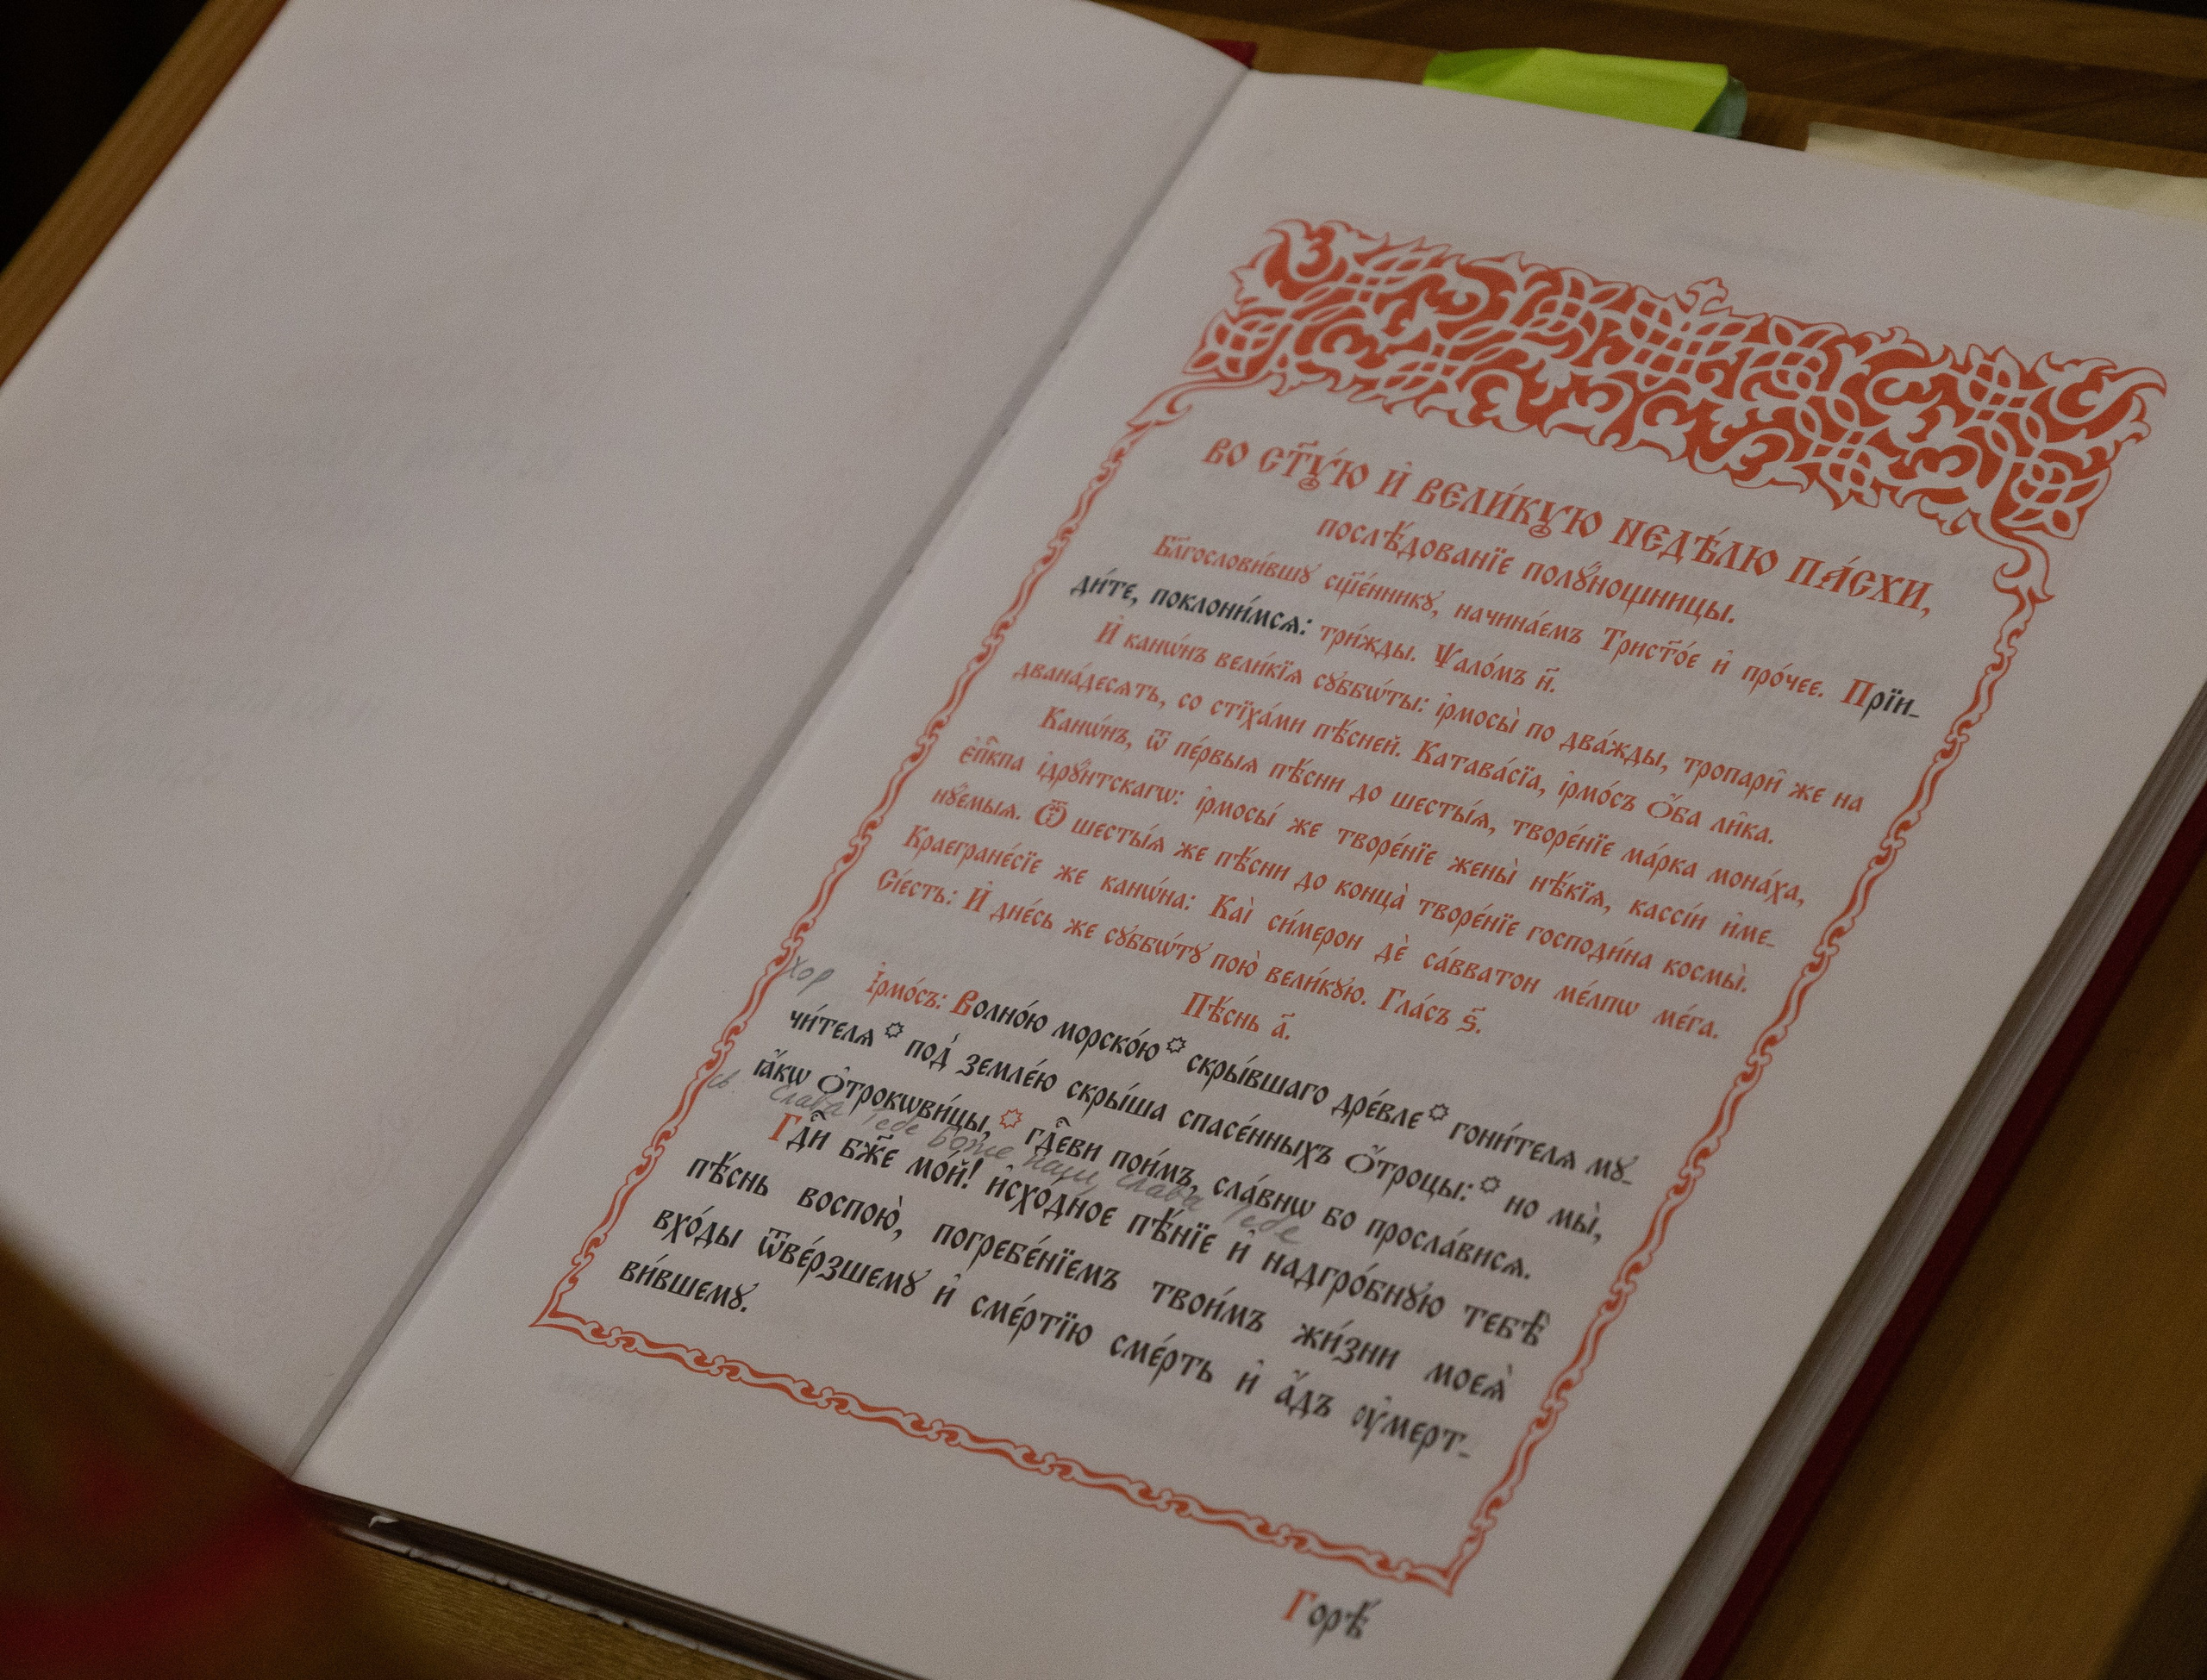 во ст҃ꙋ́ю и҆ вели́кꙋю недѣ́лю па́схи,
послѣ́дованїе полꙋ́нощницы.
Бл҃гослови́вшꙋ сщ҃е́нникꙋ, начина́емъ Трист҃о́е и҆ про́чее. Прїи-
ди́те, поклони́мсѧ: три́жды. Ѱало́мъ н҃.
И҆ канѡ́нъ вели́кїѧ сꙋббѡ́ты: і҆рмосы̀ по два́жды, тропари̑ же на
двана́десѧть, со стїха́ми пѣ́сней. Катава́сїа, і҆рмо́съ Ѻ҆́ба ли̑ка.
Канѡ́нъ, ѿ пе́рвыѧ пѣ́сни до шесты́ѧ, творе́нїе ма́рка мона́ха,
є҆пⷭ҇кпа і҆дрꙋ́нтскагѡ: і҆рмосы́ же творе́нїе жены̀ нѣ́кїѧ, кассі́и и҆ме-
нꙋ́емыѧ. Ѿ шесты́ѧ же пѣ́сни до конца̀ творе́нїе господи́на космы̀.
Краегране́сїе же канѡ́на: Каѝ си́мерон дѐ са́вватон ме́лпѡ ме́га.
Сїе́сть: И҆ дне́сь же сꙋббѡ́тꙋ пою̀ вели́кꙋю. Гла́съ ѕ҃.
Пѣ́снь а҃.
хор
І҆рмо́съ: Волно́ю морско́ю скры́вшаго дре́вле гони́телѧ мꙋ-
чи́телѧ под̾ земле́ю скры́ша спасе́нныхъ Ѻ҆́троцы: но мы̀,
ꙗ҆́кѡ ѻ҆трокѡви́цы, гдⷭ҇еви пои́мъ, сла́внѡ бо просла́висѧ.
св. Слава Тебе Боже наш, слава Тебе
Гдⷭ҇и бж҃е мо́й! и҆схо́дное пѣ́нїе и҆ надгро́бнꙋю тебѣ̀
пѣ́снь воспою̀, погребе́нїемъ твои́мъ жи́зни моеѧ̀
вхо́ды ѿве́рзшемꙋ и҆ сме́ртїю сме́рть и҆ а҆́дъ ᲂу҆мерт-
ви́вшемꙋ.
Горѣ̀